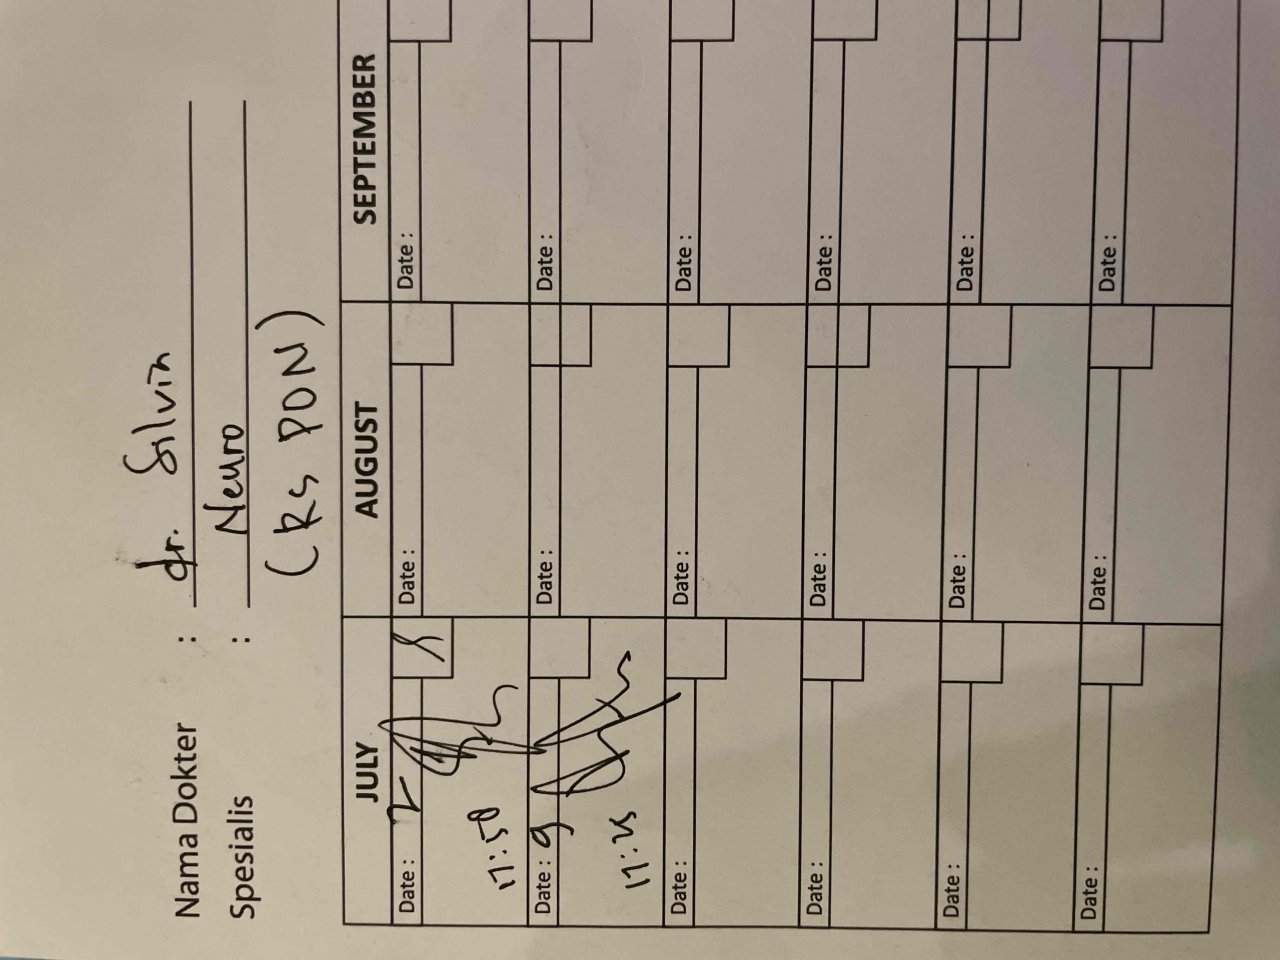 Nama Dokter : dr. Silvia
Spesialis : Neuro
(RS PON)
JULY AUGUST SEPTEMBER
Date : Date : Date :
17:50
Date : 9 Date : Date :
17:25
Date : Date : Date :
Date : Date : Date :
Date : Date : Date :
Date : Date : Date :